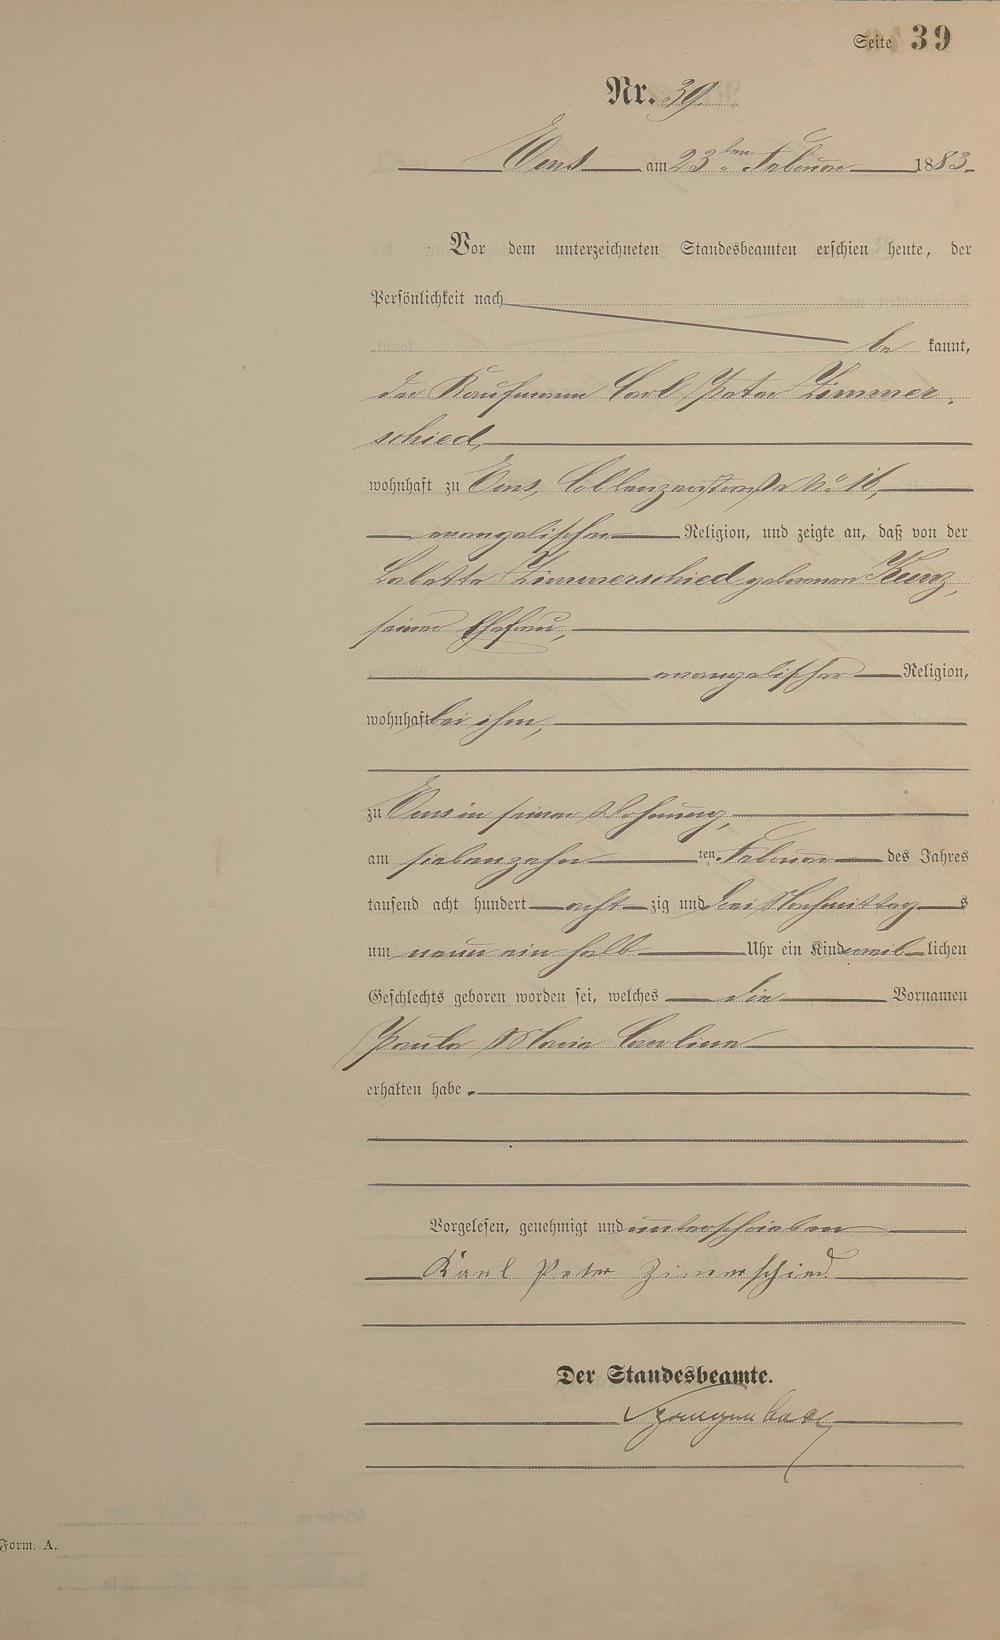 Seite 39
Nr. 39
Ems am 23ten Februar 1883.
Vor dem unterzeichneten Standesbeamten erschien heute, der
Persönlichkeit nach
be kannt,
der Kaufmann Carl Peter Zimmer-
schied,
wohnhaft zu Ems, Coblenzerstraße No 16,
evangelischer Religion, und zeigte an, daß von der
Babette Zimmerschied geborenen Kunz,
seiner Ehefrau,
evangelischer Religion,
wohnhaft bei ihm,
zu Ems in seiner Wohnung,
am siebenzehn ten Februar des Jahres
tausend acht hundert acht zig und drei Nachmittag s
um neun ein halb Uhr ein Kind weib lichen
Geschlechts geboren worden sei, welches die Vornamen
Paula Maria Carolina
erhalten habe.
Vorgelesen, genehmigt und unterschrieben
Karl Peter Zimerschied
Der Standesbeamte.
Form. A.